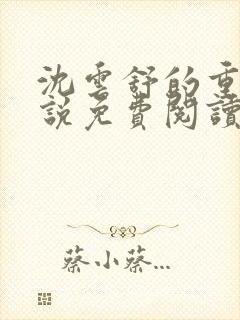 沈雲舒的重
說免費閱讀
蔡小蔡...